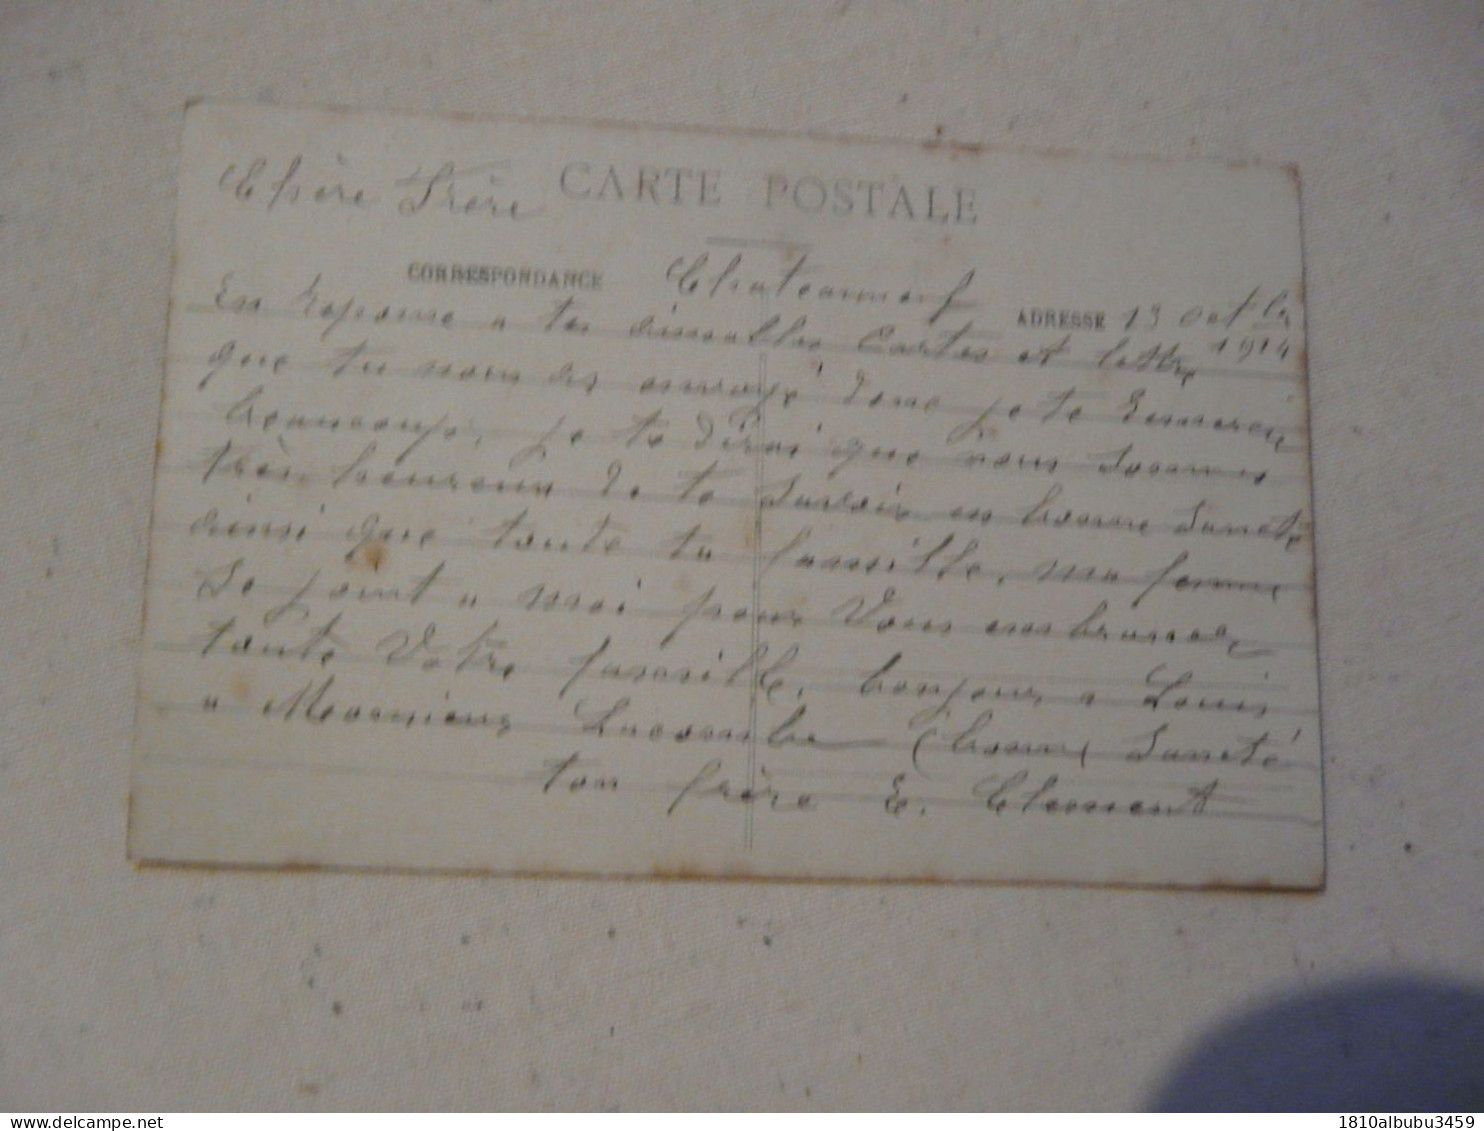 Chère Frère
CARTE POSTALE
CORRESPONDANCE
Chateauneuf
ADRESSE
13 Oct bre
1914
En reponse a tes cartes et lettre
que tu nous as envoyé donc je te remercie
beaucoup, je te dirai que nous somme
très heureux de te savoir en bonne santé
ainsi que toute ta famille, ma femme
se joint a moi pour vous embrasser
toute votre famille, bonjour a Louis
a Monsieur Lacombe (bonne santé
ton frère E. Clement
delcampe.net
1810albubu3459